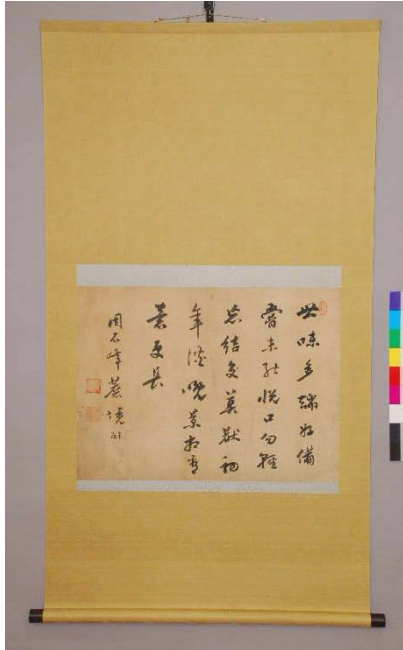 世味多端好備
嘗未能悦口勿輕
忘結交莫厭初
年淡晩景相看
意更長
石峰蔗境